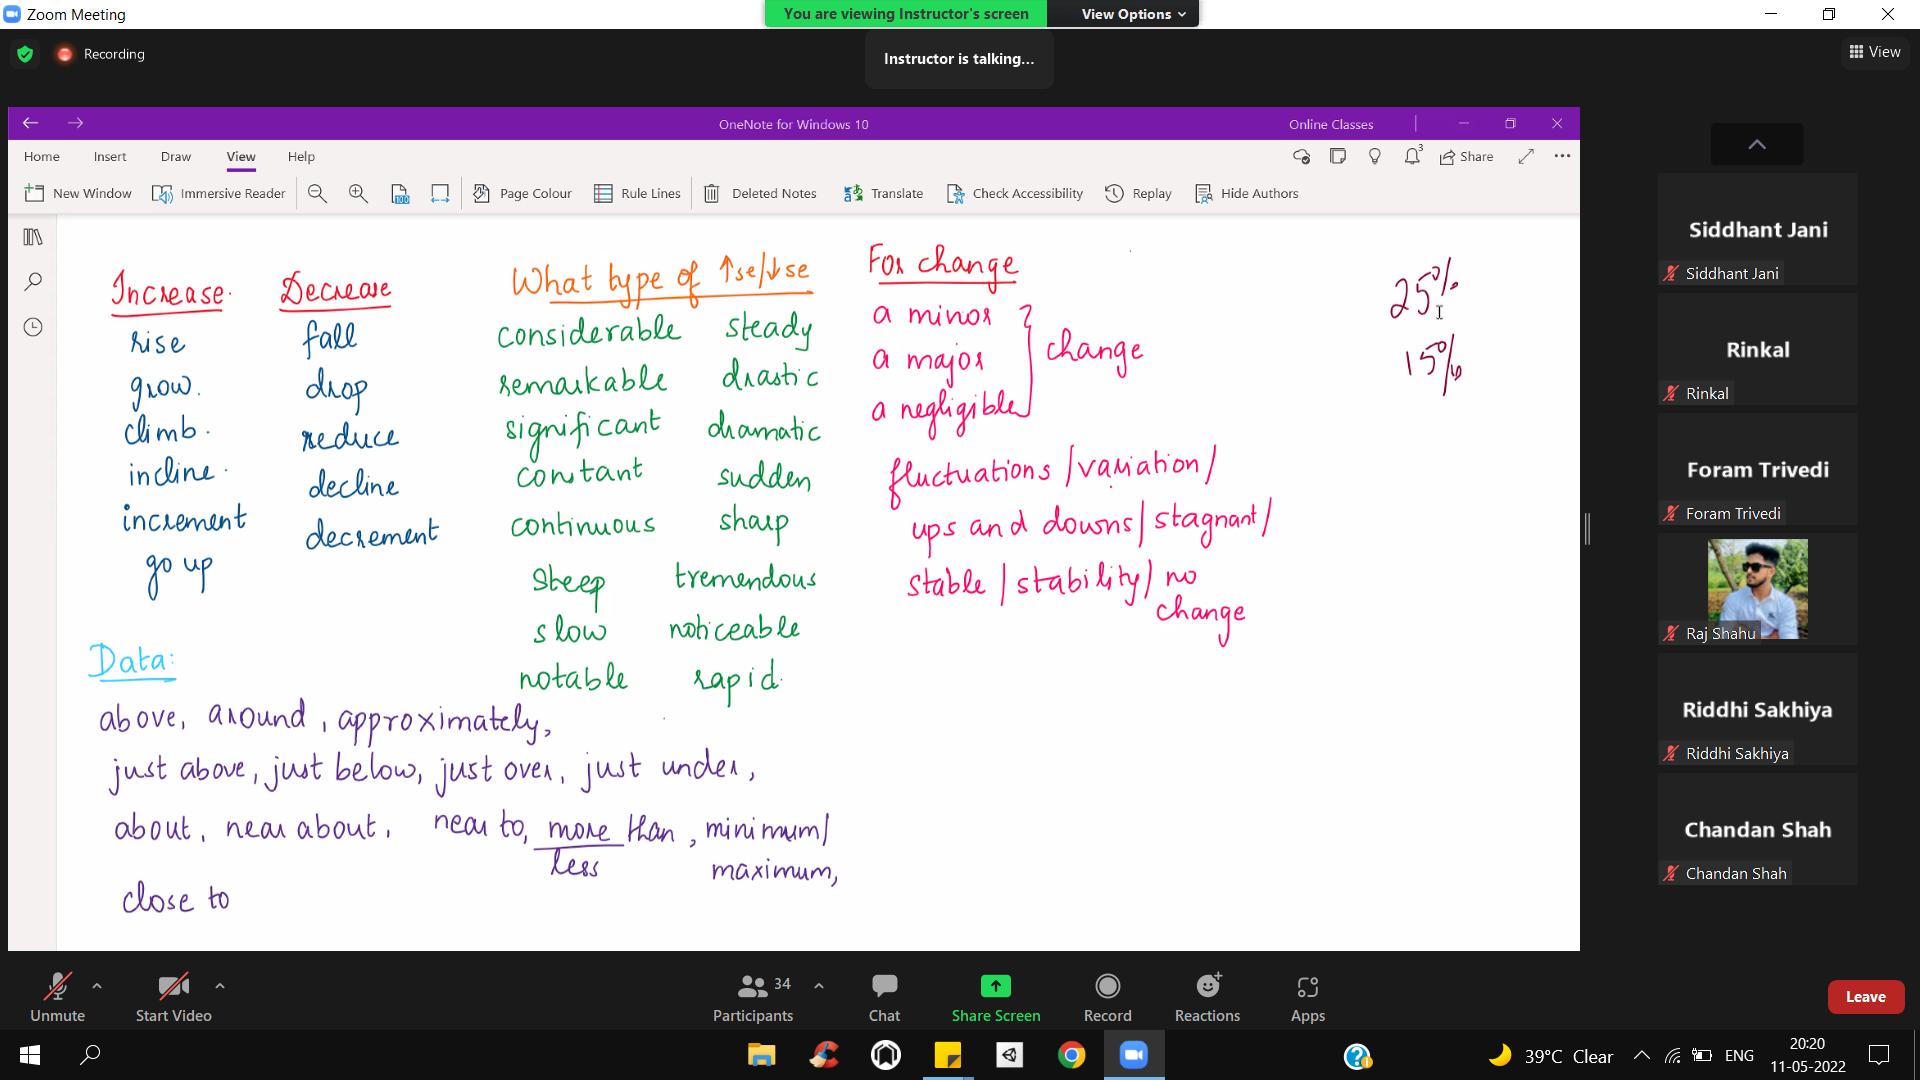 Zoom Meeting
You are viewing Instructor's screen
View Options
Recording
Instructor is talking...
View
OneNote for Windows 10
Online Classes
Home Insert Draw View Help
3
Share
New Window Immersive Reader 100 Page Colour Rule Lines Deleted Notes Translate Check Accessibility Replay Hide Authors
Increase.
rise
grow.
climb.
incline.
increment
go up
Decrease
fall
drop
reduce
decline
decrement
What type of ↑se/↓se
considerable steady
remarkable drastic
significant dramatic
constant sudden
continuous sharp
steep tremendous
slow noticeable
notable rapid.
For change
a minor
a major
a negligible
change
fluctuations / variation /
ups and downs / stagnant /
stable / stability / no
change
25%
15%
Data:
above, around, approximately,
just above, just below, just over, just under,
about, near about, near to, more than, minimum/
less maximum,
close to
Siddhant Jani
Siddhant Jani
Rinkal
Rinkal
Foram Trivedi
Foram Trivedi
Raj Shahu
Riddhi Sakhiya
Riddhi Sakhiya
Chandan Shah
Chandan Shah
Unmute
Start Video
34
Participants
Chat
Share Screen
Record
Reactions
Apps
Leave
39°C Clear
ENG
20:20
11-05-2022